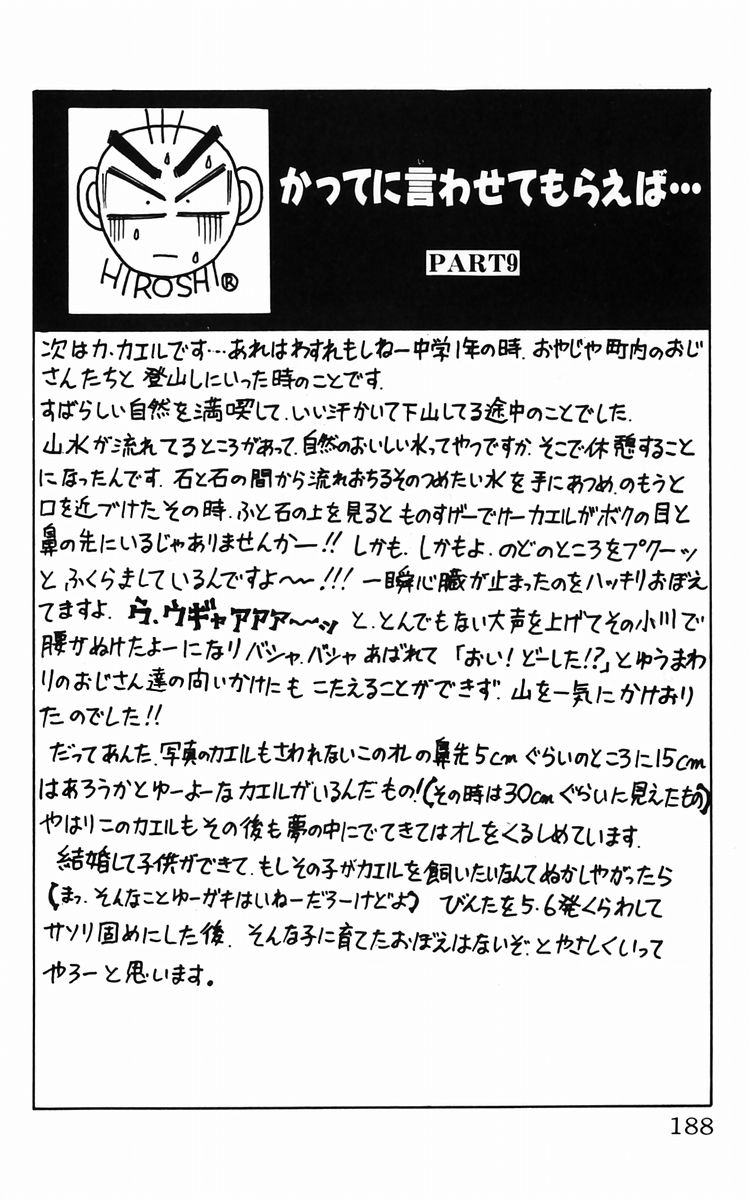 HIROSHI®
かってに言わせてもらえば…
PART9
次はカ、カエルです…あれはわすれもしねー中学1年の時、おやじや町内のおじ
さんたちと登山しにいった時のことです。
すばらしい自然を満喫して、いい汗かいて下山してる途中のことでした。
山水が流れてるところがあって、自然のおいしい水ってやつですか、そこで休憩すること
になったんです。石と石の間から流れおちるそのつめたい水を手にあつめ、のもうと
口を近づけたその時、ふと石の上を見るとものすげーでけーカエルがボクの目と
鼻の先にいるじゃありませんかー!!しかも、しかもよ、のどのところをプクーッ
とふくらましているんですよ〜〜!!!一瞬心臓が止まったのをハッキリおぼえ
てますよ、ウ、ウギャアアア〜〜ッと、とんでもない大声を上げてその小川で
腰がぬけたよーになりバシャ、バシャあばれて「おい!どーした!?」とゆうまわ
りのおじさん達の向いかけにもこたえることができず、山を一気にかけおり
たのでした!!
だってあんた、写真のカエルもさわれないこのオレの鼻先5cmぐらいのところに15cm
はあろうかとゆーよーなカエルがいるんだもの!(その時は30cmぐらいに見えたもの)
やはりこのカエルもその後も夢の中にでてきてはオレをくるしめています。
結婚して子供ができて、もしその子がカエルを飼いたいなんてぬかしやがったら
(まっ、そんなことゆーガキはいねーだろーけどよ)びんたを5、6発くらわして
サソリ固めにした後、そんな子に育てたおぼえはないぞ、とやさしくいって
やろーと思います。
188